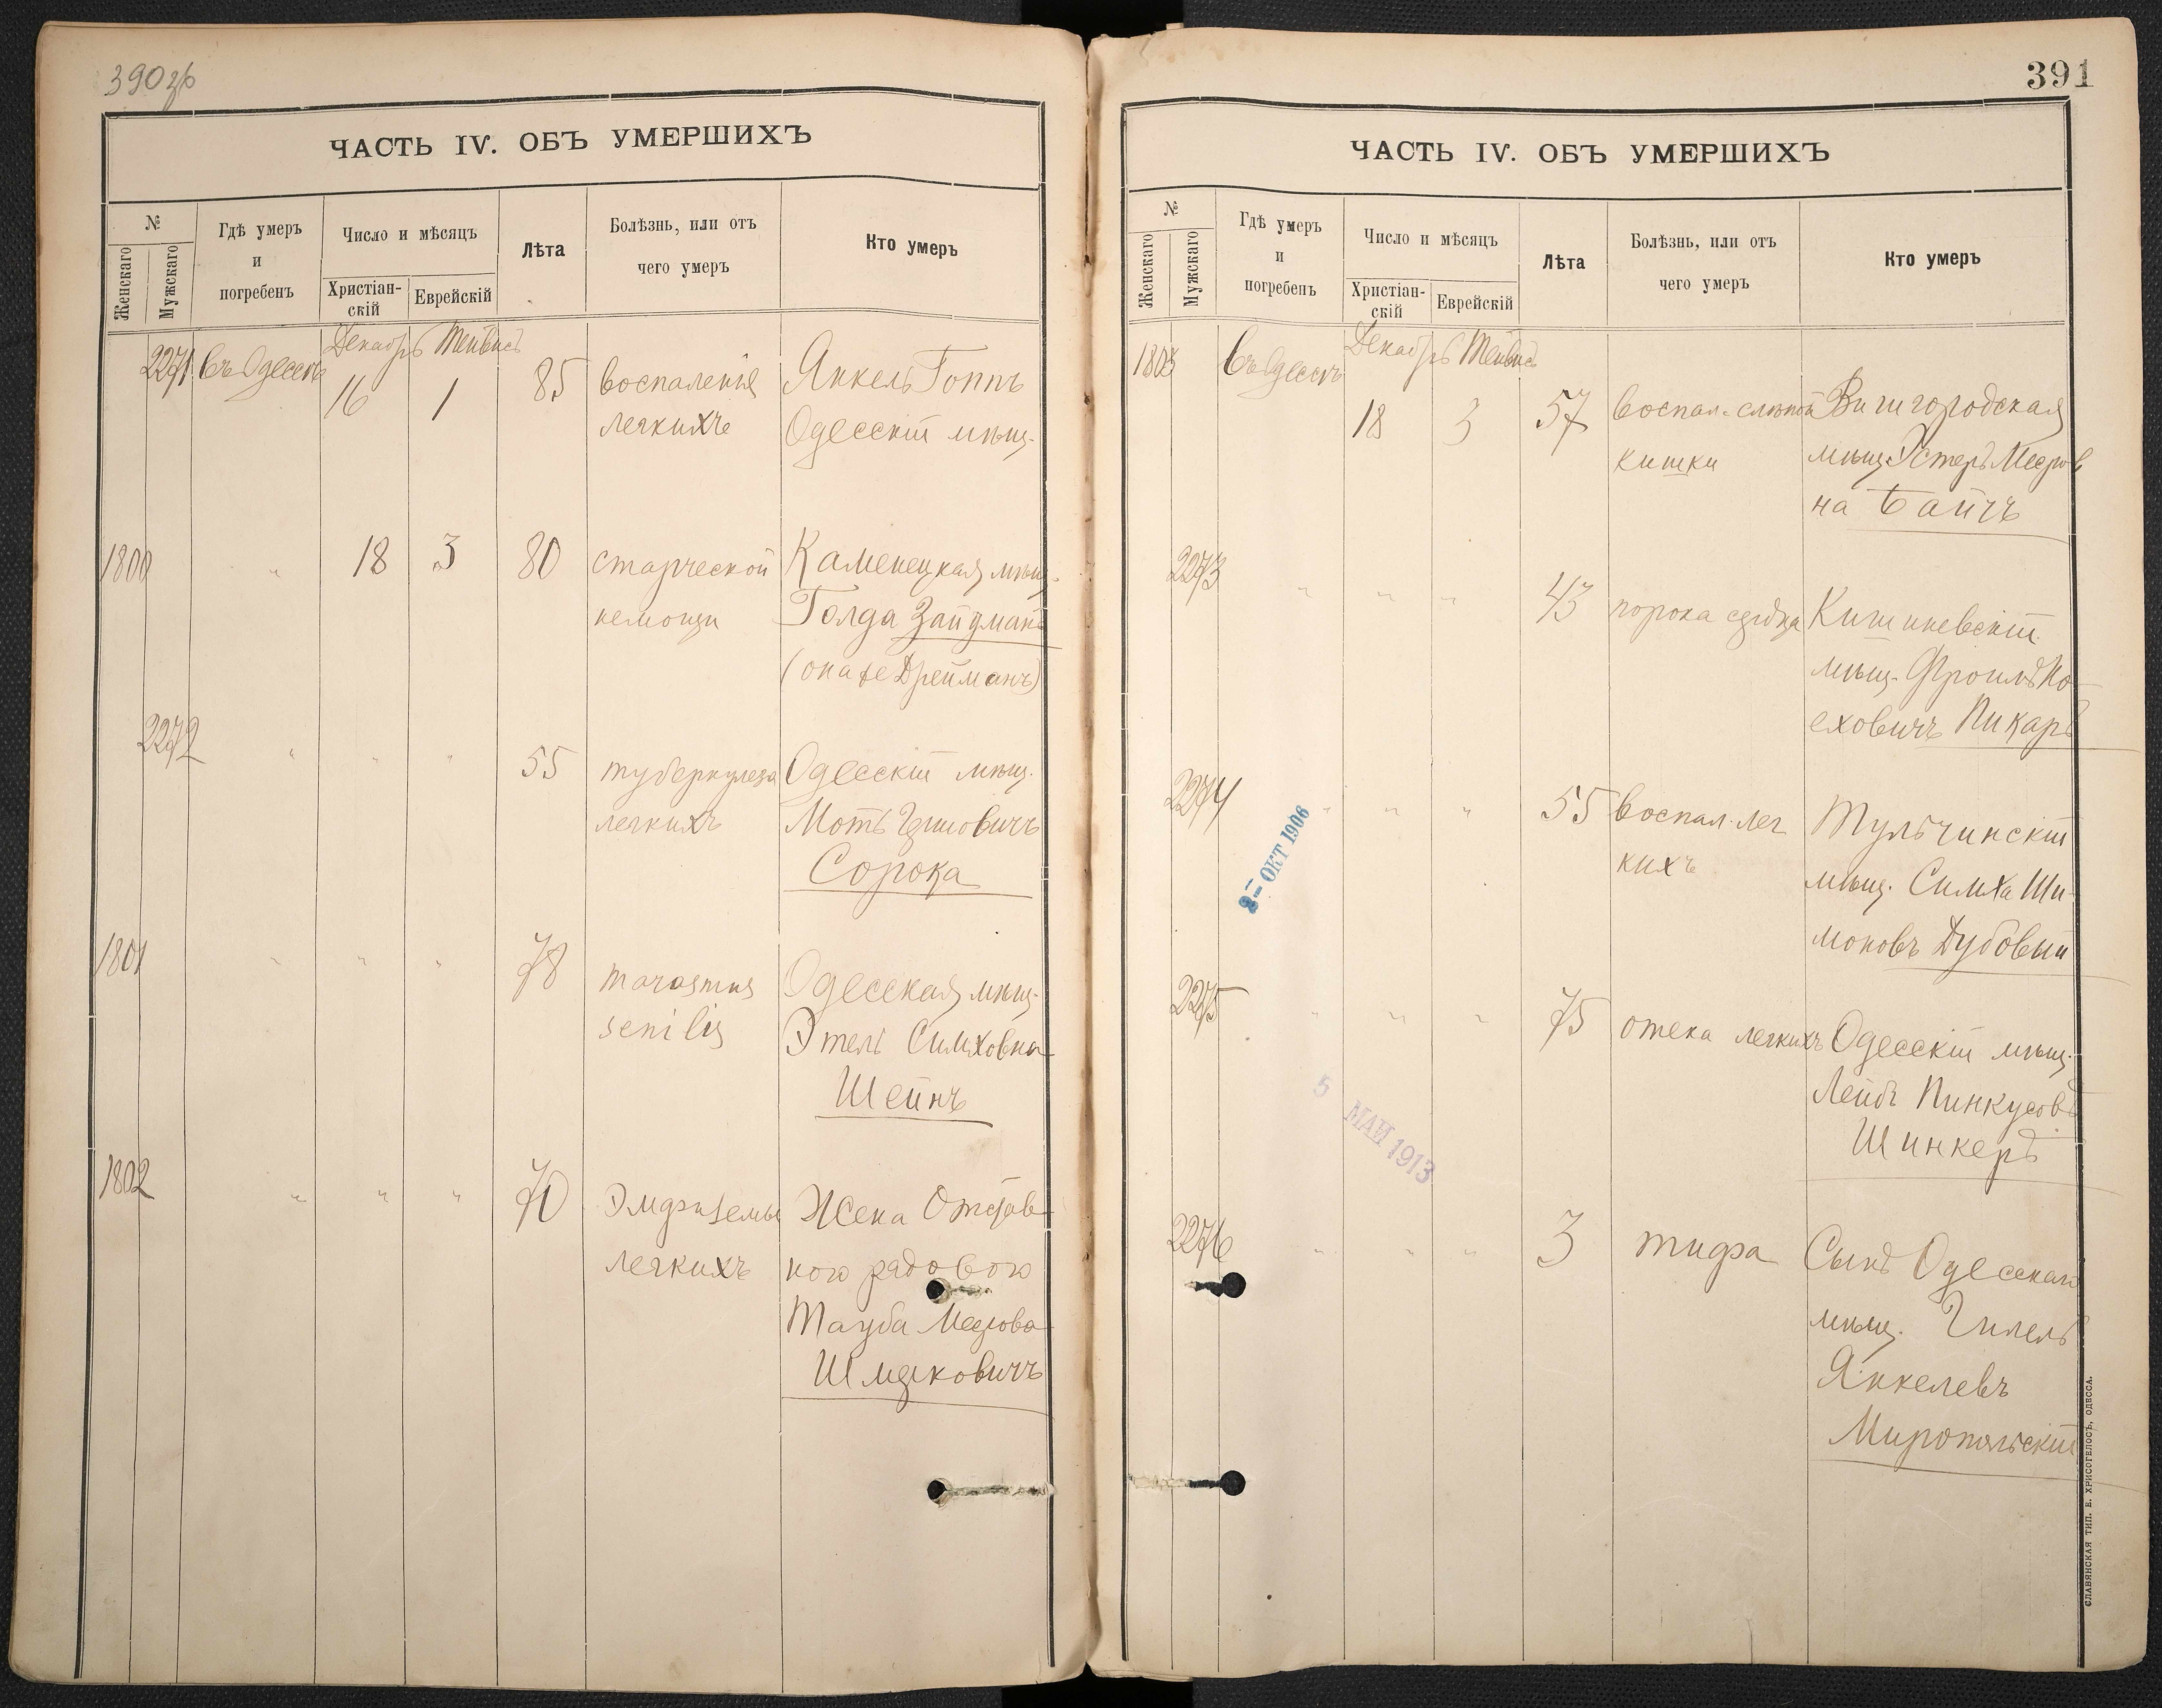 390 об
ЧАСТЬ IV. ОБЪ УМЕРШИХЪ
№
Женскаго
Мужскаго
Гдѣ умеръ
и
погребенъ
Число и мѣсяцъ
Христіан-
скій
Еврейскій
Лѣта
Болѣзнь, или отъ
чего умеръ
Кто умеръ
Декабрь Тейвись
2271 Въ Одессѣ 16 1 85 воспаленія Янкель Гоппъ
легкихъ Одесскій мѣщ.
1800 " 18 3 80 старческой Каменецкая мѣщ.
немощи Голда Зайдманъ
(она же Дрейманъ)
2272 " " " 55 туберкулеза Одесскій мѣщ.
легкихъ Моть Гершовичъ
Сорока
1801 " " " 78 marasmus Одесская мѣщ.
senilis Этель Симховна
Шейнъ
1802 " " " 70 Эмфиземы Жена Отстав
легкихъ ного рядового
Тауба Меерова
Шмуковичъ
391
ЧАСТЬ IV. ОБЪ УМЕРШИХЪ
№
Женскаго
Мужскаго
Гдѣ умеръ
и
погребенъ
Число и мѣсяцъ
Христіан-
скій
Еврейскій
Лѣта
Болѣзнь, или отъ
чего умеръ
Кто умеръ
Декабрь Тейвись
1803 Въ Одессѣ 18 3 57 воспал. слѣпой Вышгородская
кишки мѣщ. Эстеръ Мееров
на Байчъ
2273 " " " 43 порока сердца Кишиневскій
мѣщ. Фроимъ Но-
еховичъ Пикаръ
2274 " " " 55 воспал. лег Тульчинскій
кихъ мѣщ. Симха Ши-
моновъ Дубовый
2- ОКТ 1906
2275 " " " 75 отека легкихъ Одесскій мѣщ.
Лейбъ Пинкусовъ
Шинкеръ
5 МАЙ 1913
2276 " " " 3 тифа Сынъ Одесскаго
мѣщ. Гилель
Янкелевъ
Миропольскій
СЛАВЯНСКАЯ ТИП. Е. ХРИСОГЕЛОСЪ, ОДЕССА.